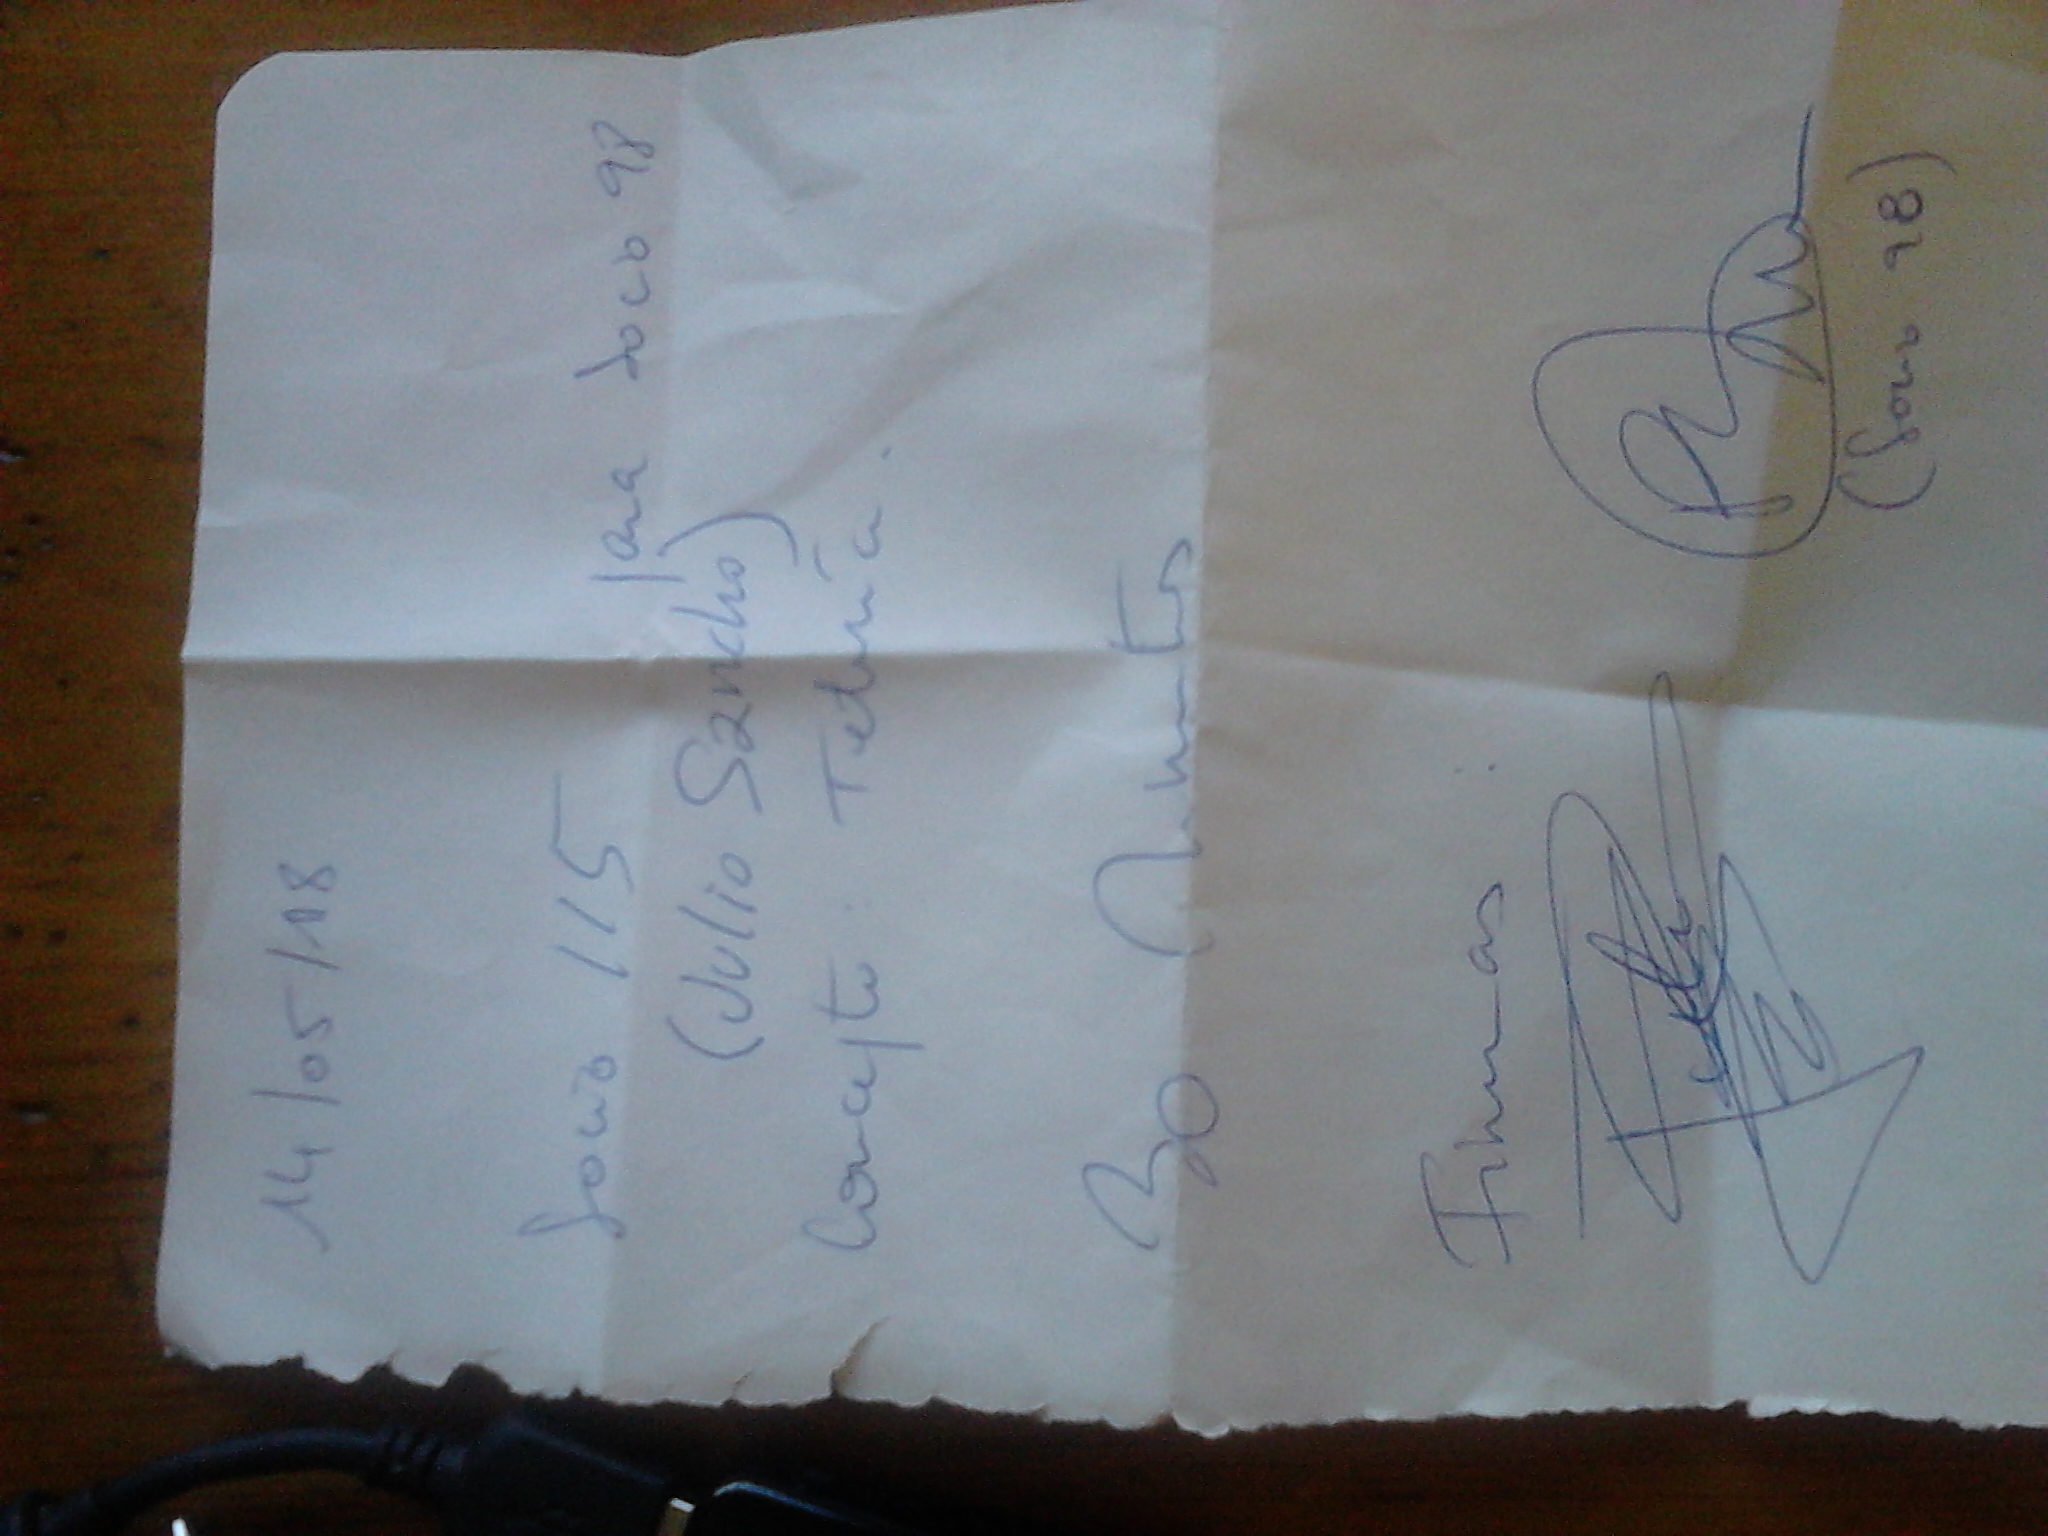 14/05/18
Socio 115 para Socio 98
(Julio Sancho)
Concepto: Tetería.
30 Minutos
Firmas:
(Socio 98)